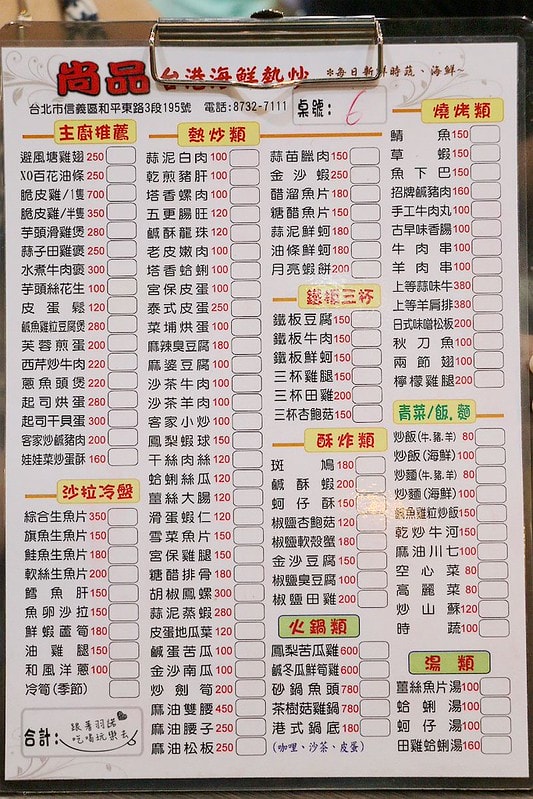 尚品台港海鮮熱炒 *每日新鮮時蔬、海鮮~
台北市信義區和平東路3段195號 電話:8732-7111
桌號: 6
主廚推薦
避風塘雞翅 250
XO百花油條 250
脆皮雞/1隻 700
脆皮雞/半隻 350
芋頭滑雞煲 280
蒜子田雞煲 250
水煮牛肉煲 300
芋頭絲花生 100
皮蛋鬆 120
鹹魚雞粒豆腐煲 280
芙蓉煎蛋 200
西芹炒牛肉 220
蔥魚頭煲 220
起司烘蛋 280
起司干貝蛋 300
客家炒鹹豬肉 200
娃娃菜炒蛋酥 160
沙拉冷盤
綜合生魚片 350
旗魚生魚片 150
鮭魚生魚片 180
軟絲生魚片 200
鱈魚肝 150
魚卵沙拉 150
鮮蝦蘆筍 180
油雞腿 150
和風洋蔥 100
冷筍(季節)
合計:
跟著羽諾
吃喝玩樂去
熱炒類
蒜泥白肉 100
乾煎豬肝 100
塔香螺肉 100
五更腸旺 120
鹹酥龍珠 120
老皮嫩肉 100
塔香蛤蜊 100
宮保皮蛋 100
泰式皮蛋 250
菜埔烘蛋 100
麻辣臭豆腐 180
麻婆豆腐 100
沙茶牛肉 100
沙茶羊肉 100
客家小炒 100
鳳梨蝦球 150
干絲肉絲 120
蛤蜊絲瓜 120
薑絲大腸 120
滑蛋蝦仁 120
雪菜魚片 150
宮保雞腿 150
糖醋排骨 180
胡椒鳳螺 300
蒜泥蒸蝦 280
皮蛋地瓜葉 120
鹹蛋苦瓜 100
金沙南瓜 100
炒劍筍 200
麻油雙腰 450
麻油腰子 250
麻油松板 250
蒜苗臘肉 150
金沙蝦 250
醋溜魚片 180
糖醋魚片 150
蒜泥鮮蚵 180
油條鮮蚵 180
月亮蝦餅 200
鐵板三杯
鐵板豆腐 150
鐵板牛肉 150
鐵板鮮蚵 150
三杯雞腿 150
三杯田雞 200
三杯杏鮑菇 150
酥炸類
斑鳩 180
鹹酥蝦 200
蚵仔酥 150
椒鹽杏鮑菇 120
椒鹽軟殼蟹 180
金沙豆腐 150
椒鹽臭豆腐 100
椒鹽田雞 200
火鍋類
鳳梨苦瓜雞 600
鹹冬瓜鮮筍雞 600
砂鍋魚頭 780
茶樹菇雞鍋 780
港式鍋底 180
(咖哩、沙茶、皮蛋)
燒烤類
鯖魚 150
草蝦 150
魚下巴 150
招牌鹹豬肉 160
手工牛肉丸 100
古早味香腸 100
牛肉串 100
羊肉串 100
上等蒜味牛 380
上等羊肩排 380
日式味噌松板 200
秋刀魚 100
兩節翅 100
檸檬雞腿 200
青菜/飯.麵
炒飯(牛.豬.羊) 80
炒飯(海鮮) 100
炒麵(牛.豬.羊) 80
炒麵(海鮮) 100
鹹魚雞粒炒飯 150
乾炒牛河 150
麻油川七 100
空心菜 80
高麗菜 80
炒山蘇 120
時蔬 100
湯類
薑絲魚片湯 100
蛤蜊湯 100
蚵仔湯 100
田雞蛤蜊湯 160